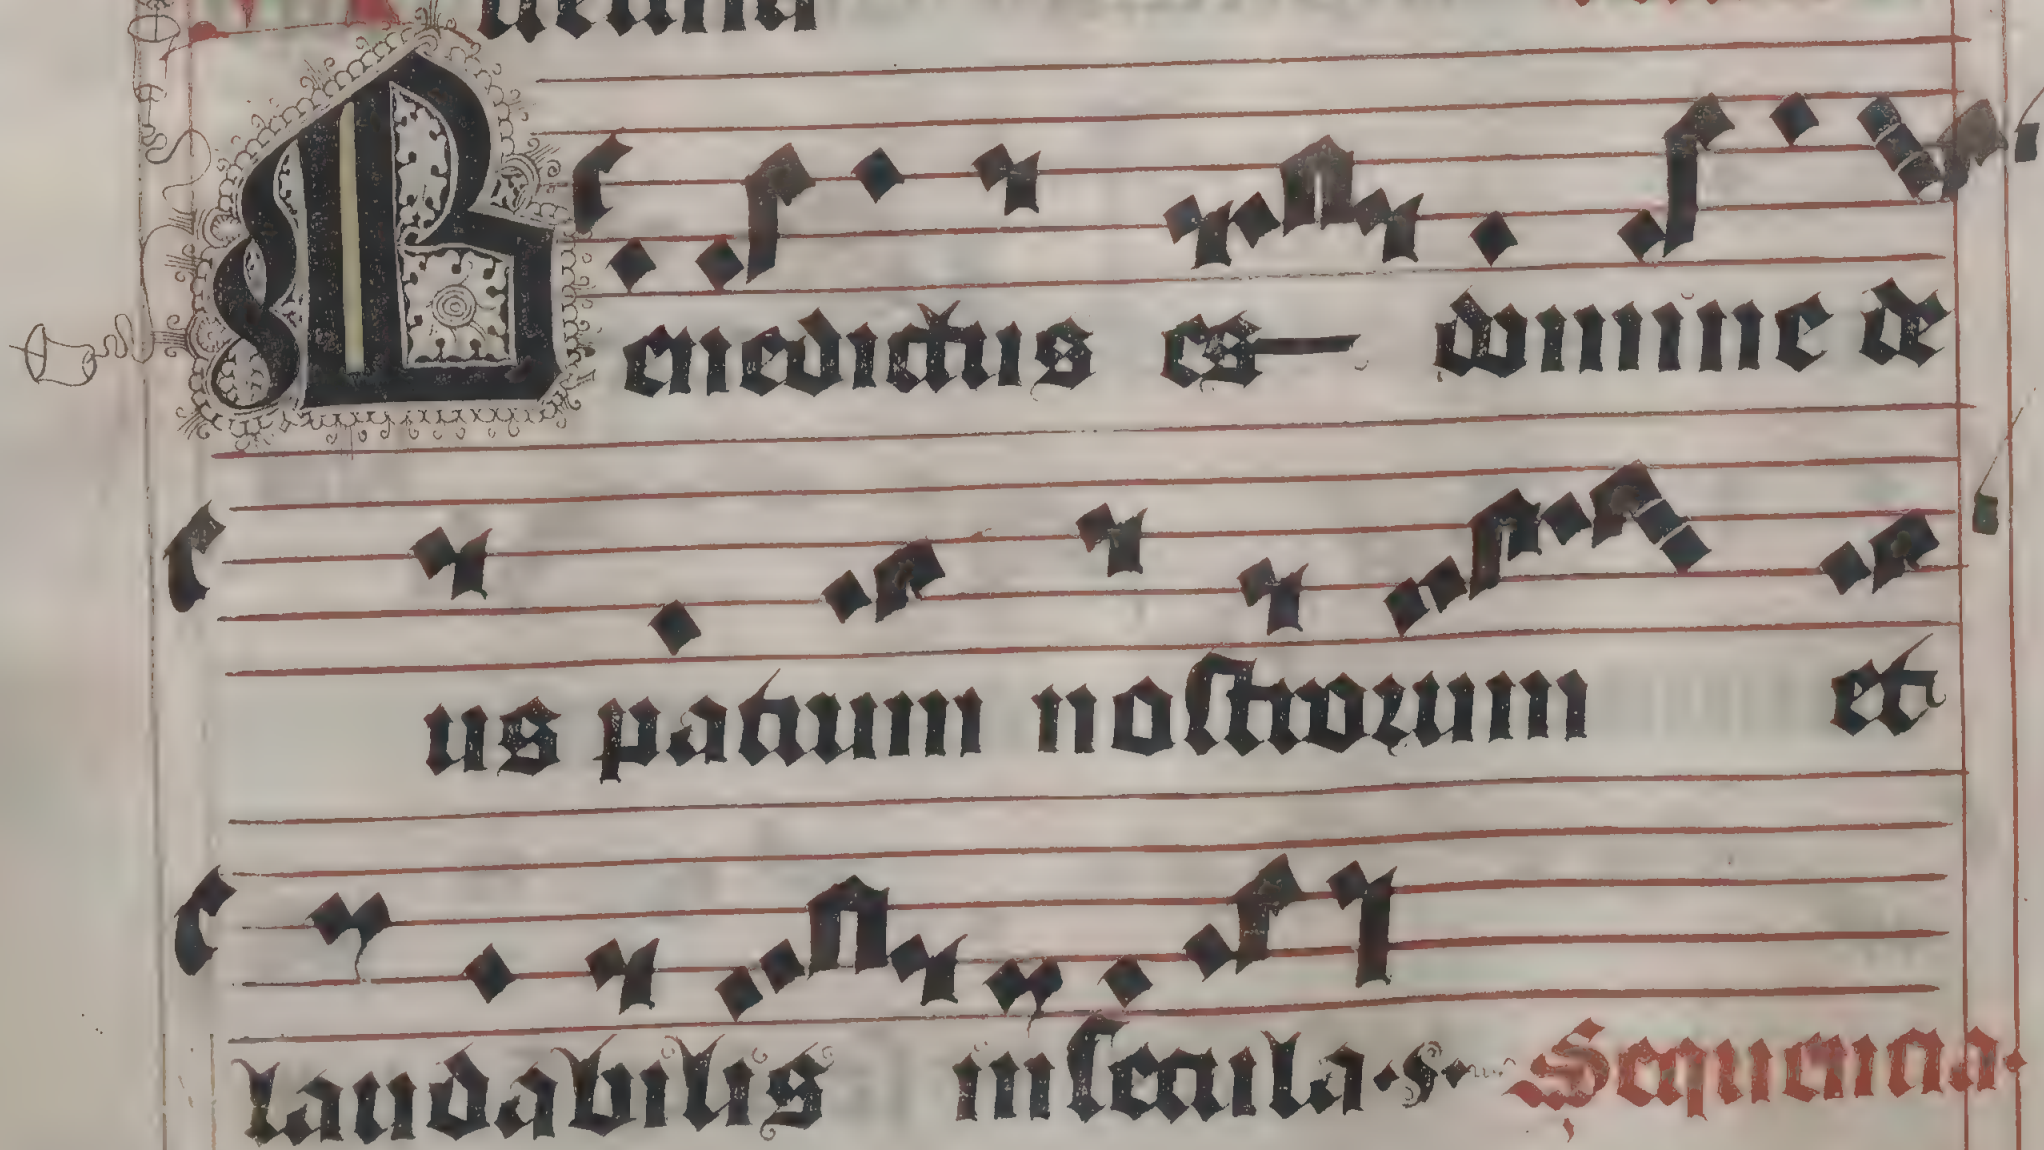 Benedictus es domine de
us patrum nostrorum et
laudabilis in secula. s. Sequentia.